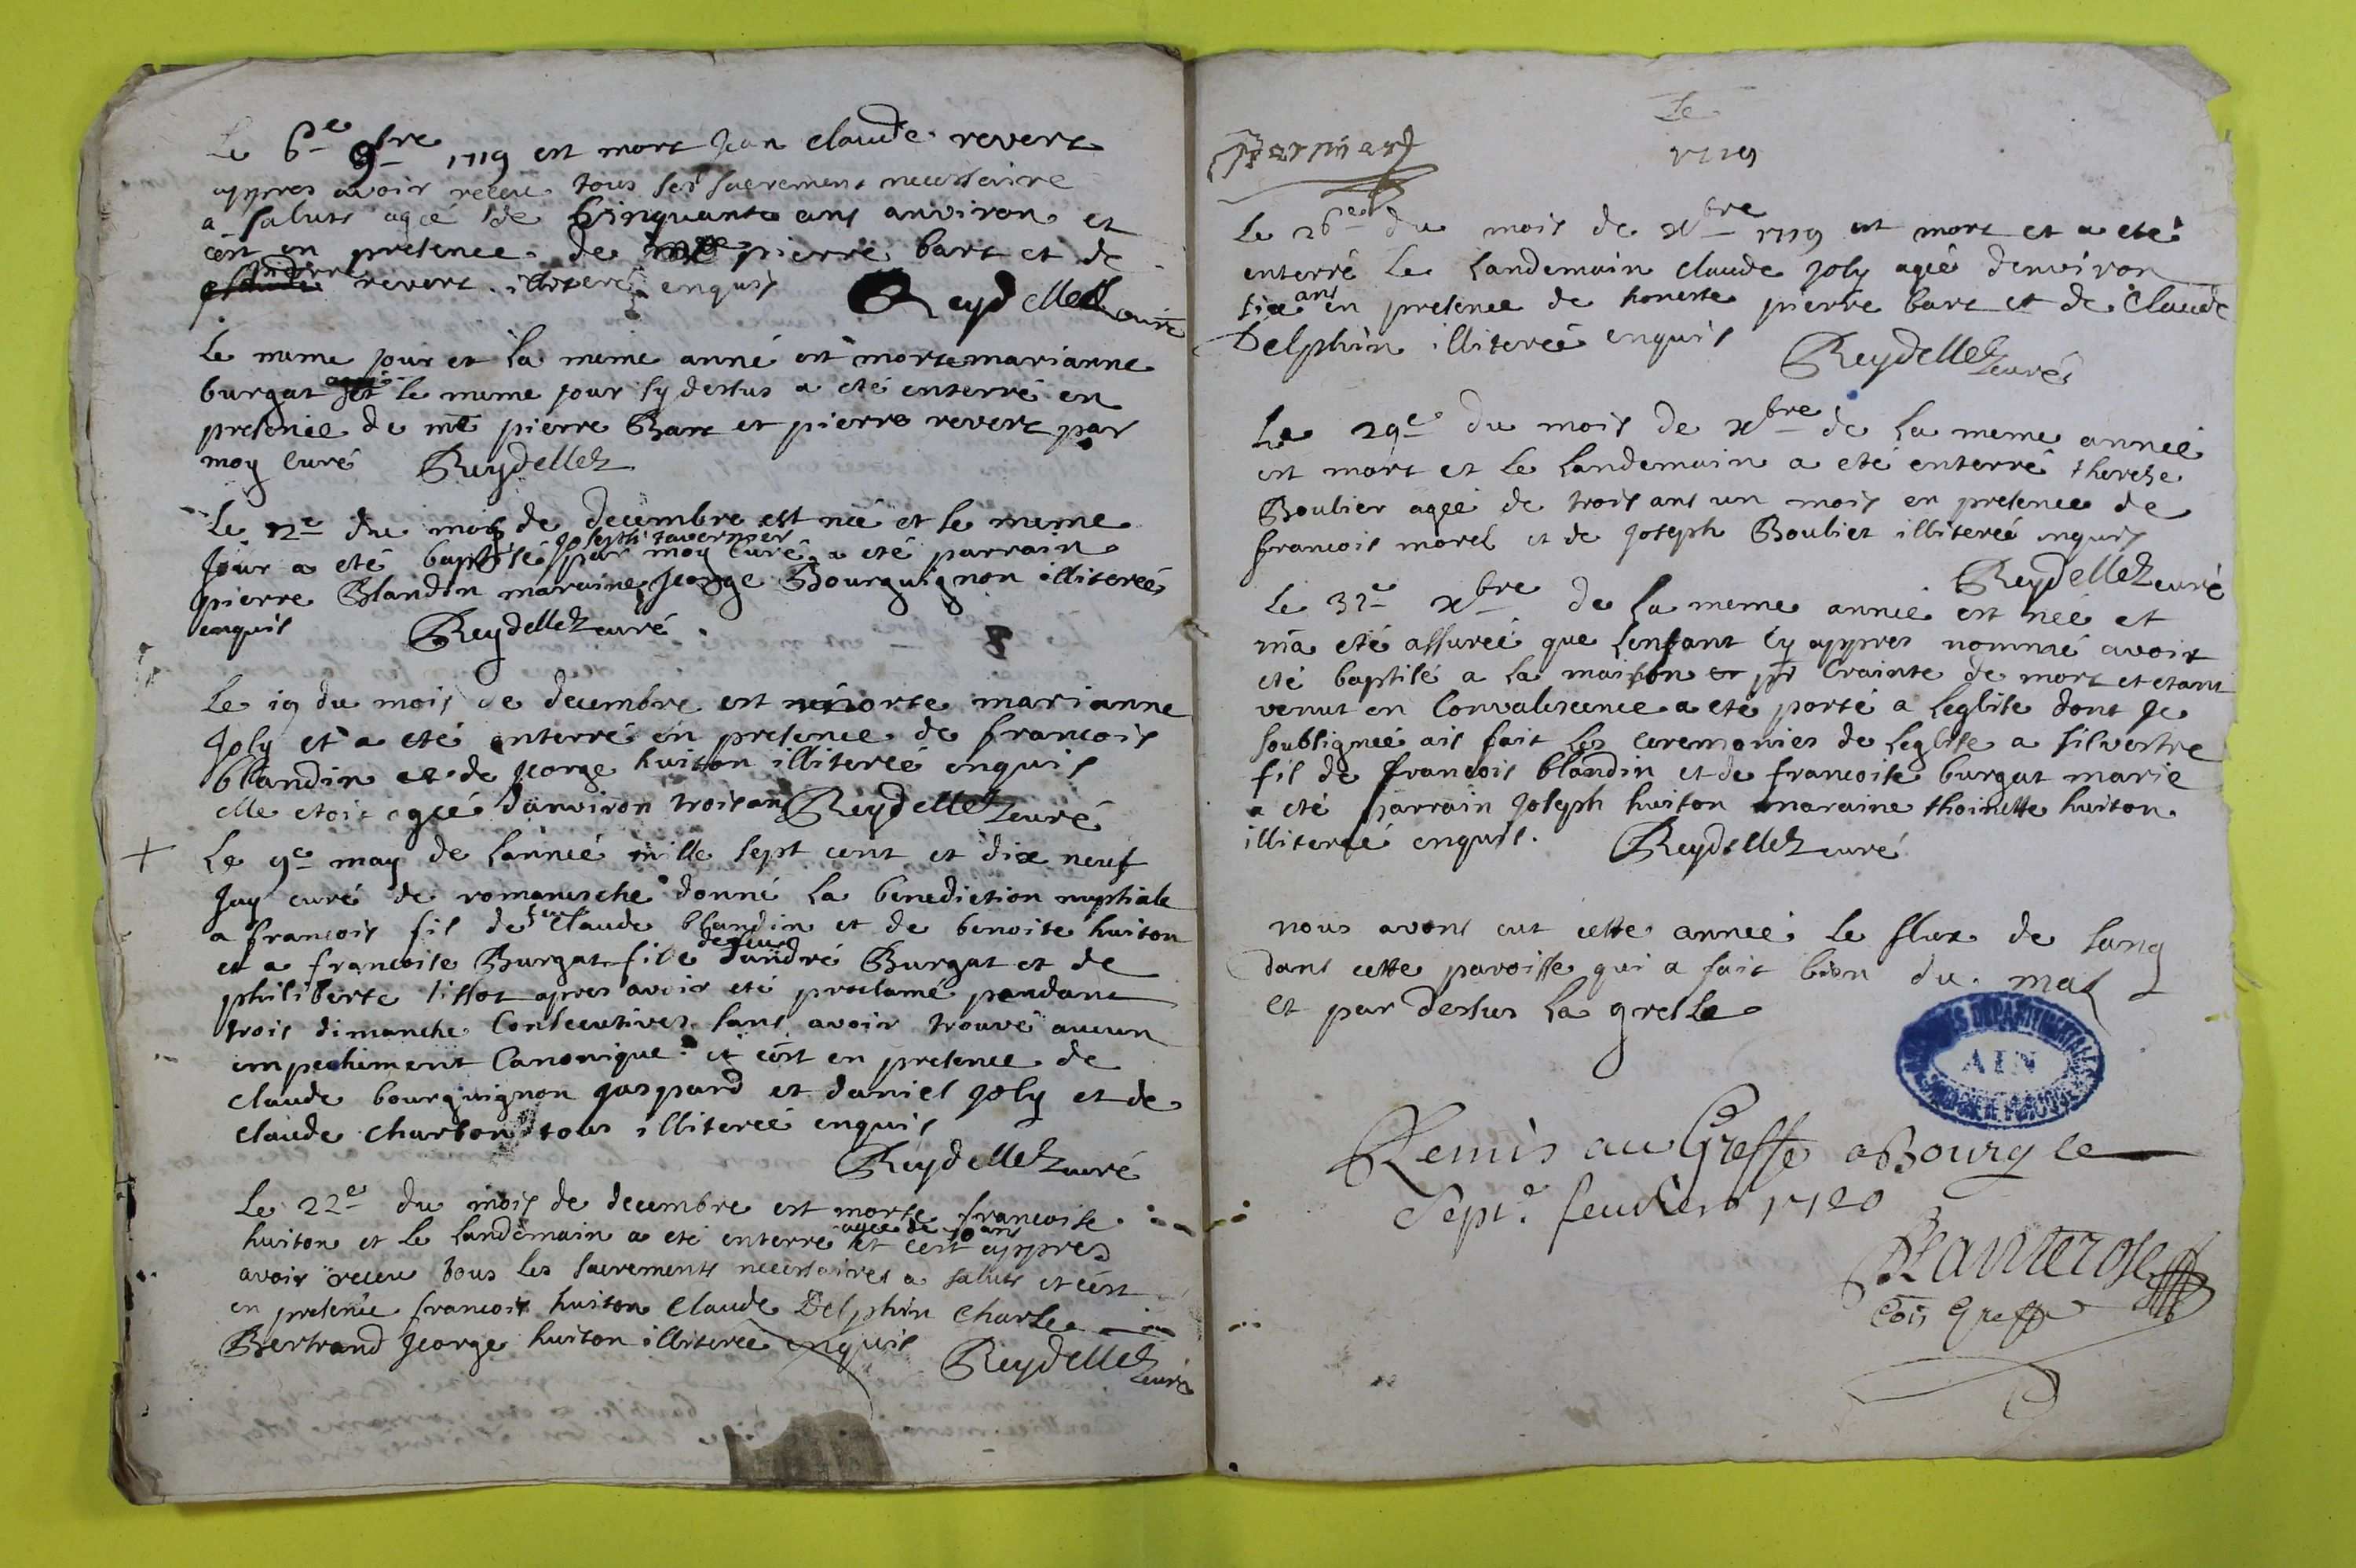 Le 6e 9bre 1719 est mort Jean claude revert
appres avoir receu tous ses sacrement necessaire
a saluts agé de Cinquante ans anviron et
cest en presence de pierre bart et de
pierre revert illiteré enquis Reydellet curé
Le meme jour et la meme anné est morte marianne
burgat et le meme jour sy dessus a eté enterré en
presence de mre pierre Bart et pierre revert par
moy Curé Reydellet
Le 12e du mois de decembre est neé et le meme
Joseph tavernier
Jour a eté baptisé par moy Curé a eté parrain
pierre Blandin maraine Jeorge Bourguignon illitereé
enquis Reydellet curé
Le 19 du mois de decembre est morte marianne
Joly et a eté enterré en presence de francois
blandin et de Jeorge huiton illitereé enquis
elle etoit ageé danviron trois an Reydellet curé
+ Le 9e may de lanneé mille sept cent et dix neuf
Jay curé de romanesche donné la benediction nuptiale
a francois fil de feu Claude blandin et de benoite huiton
et a francoise Burgat file defeut dandré Burgat et de
philiberte tissot apres avoir eté proclamé pendant
trois dimanche Consecutives sans avoir trouvé aucun
empechement Canonique et cest en presence de
claude bourguignon gaspard et daniel Joly et de
claude charbon tous illitereé enquis
Reydellet curé
Le 22e du mois de decembre est morte francoise
ageé de 50 ans
huiton et le landemain a eté enterré et cest appres
avoir receu tous les sacrements necessaires a saluts et cest
en presence francois huiton Claude Delphin Charle
Bertrand Jeorge huiton illitereé enquis Reydellet curé
Le
1719
Le 26e du mois de xbre 1719 est mort et a eté
enterré le landemain claude Joly ageé denviron
six ans en presence de honeste pierre bart et de Claude
Delphin illitereé enquis Reydellet curé
Le 29e du mois de xbre de la meme anneé
est mort et le landemain a eté enterré therese
Boulier ageé de trois ans un mois en presence de
francois morel et de Joseph Boulier illitereé enquis
Reydellet curé
Le 31e xbre de la meme anneé est neé et
ma eté assureé que lenfant Cy appres nommé avoit
eté baptisé a la maison pr Crainte de mort et etant
venut en Convalescence a eté porté a leglise dont Je
soubsigneé ais fait les ceremonies de leglise a silvestre
fil de francois blandin et de francoise burgat marié
a eté parrain Joseph huiton maraine thoinette huiton
illitereé enquis. Reydellet curé
nous avons eut cette anneé le flux de sang
dans cette paroisse qui a fait bien du mal
et par dessus la gresle
ARCHIVES DEPARTEMENTALES
AIN
Remis au Greffe a Bourg le
Sept.e feuvrier 1720